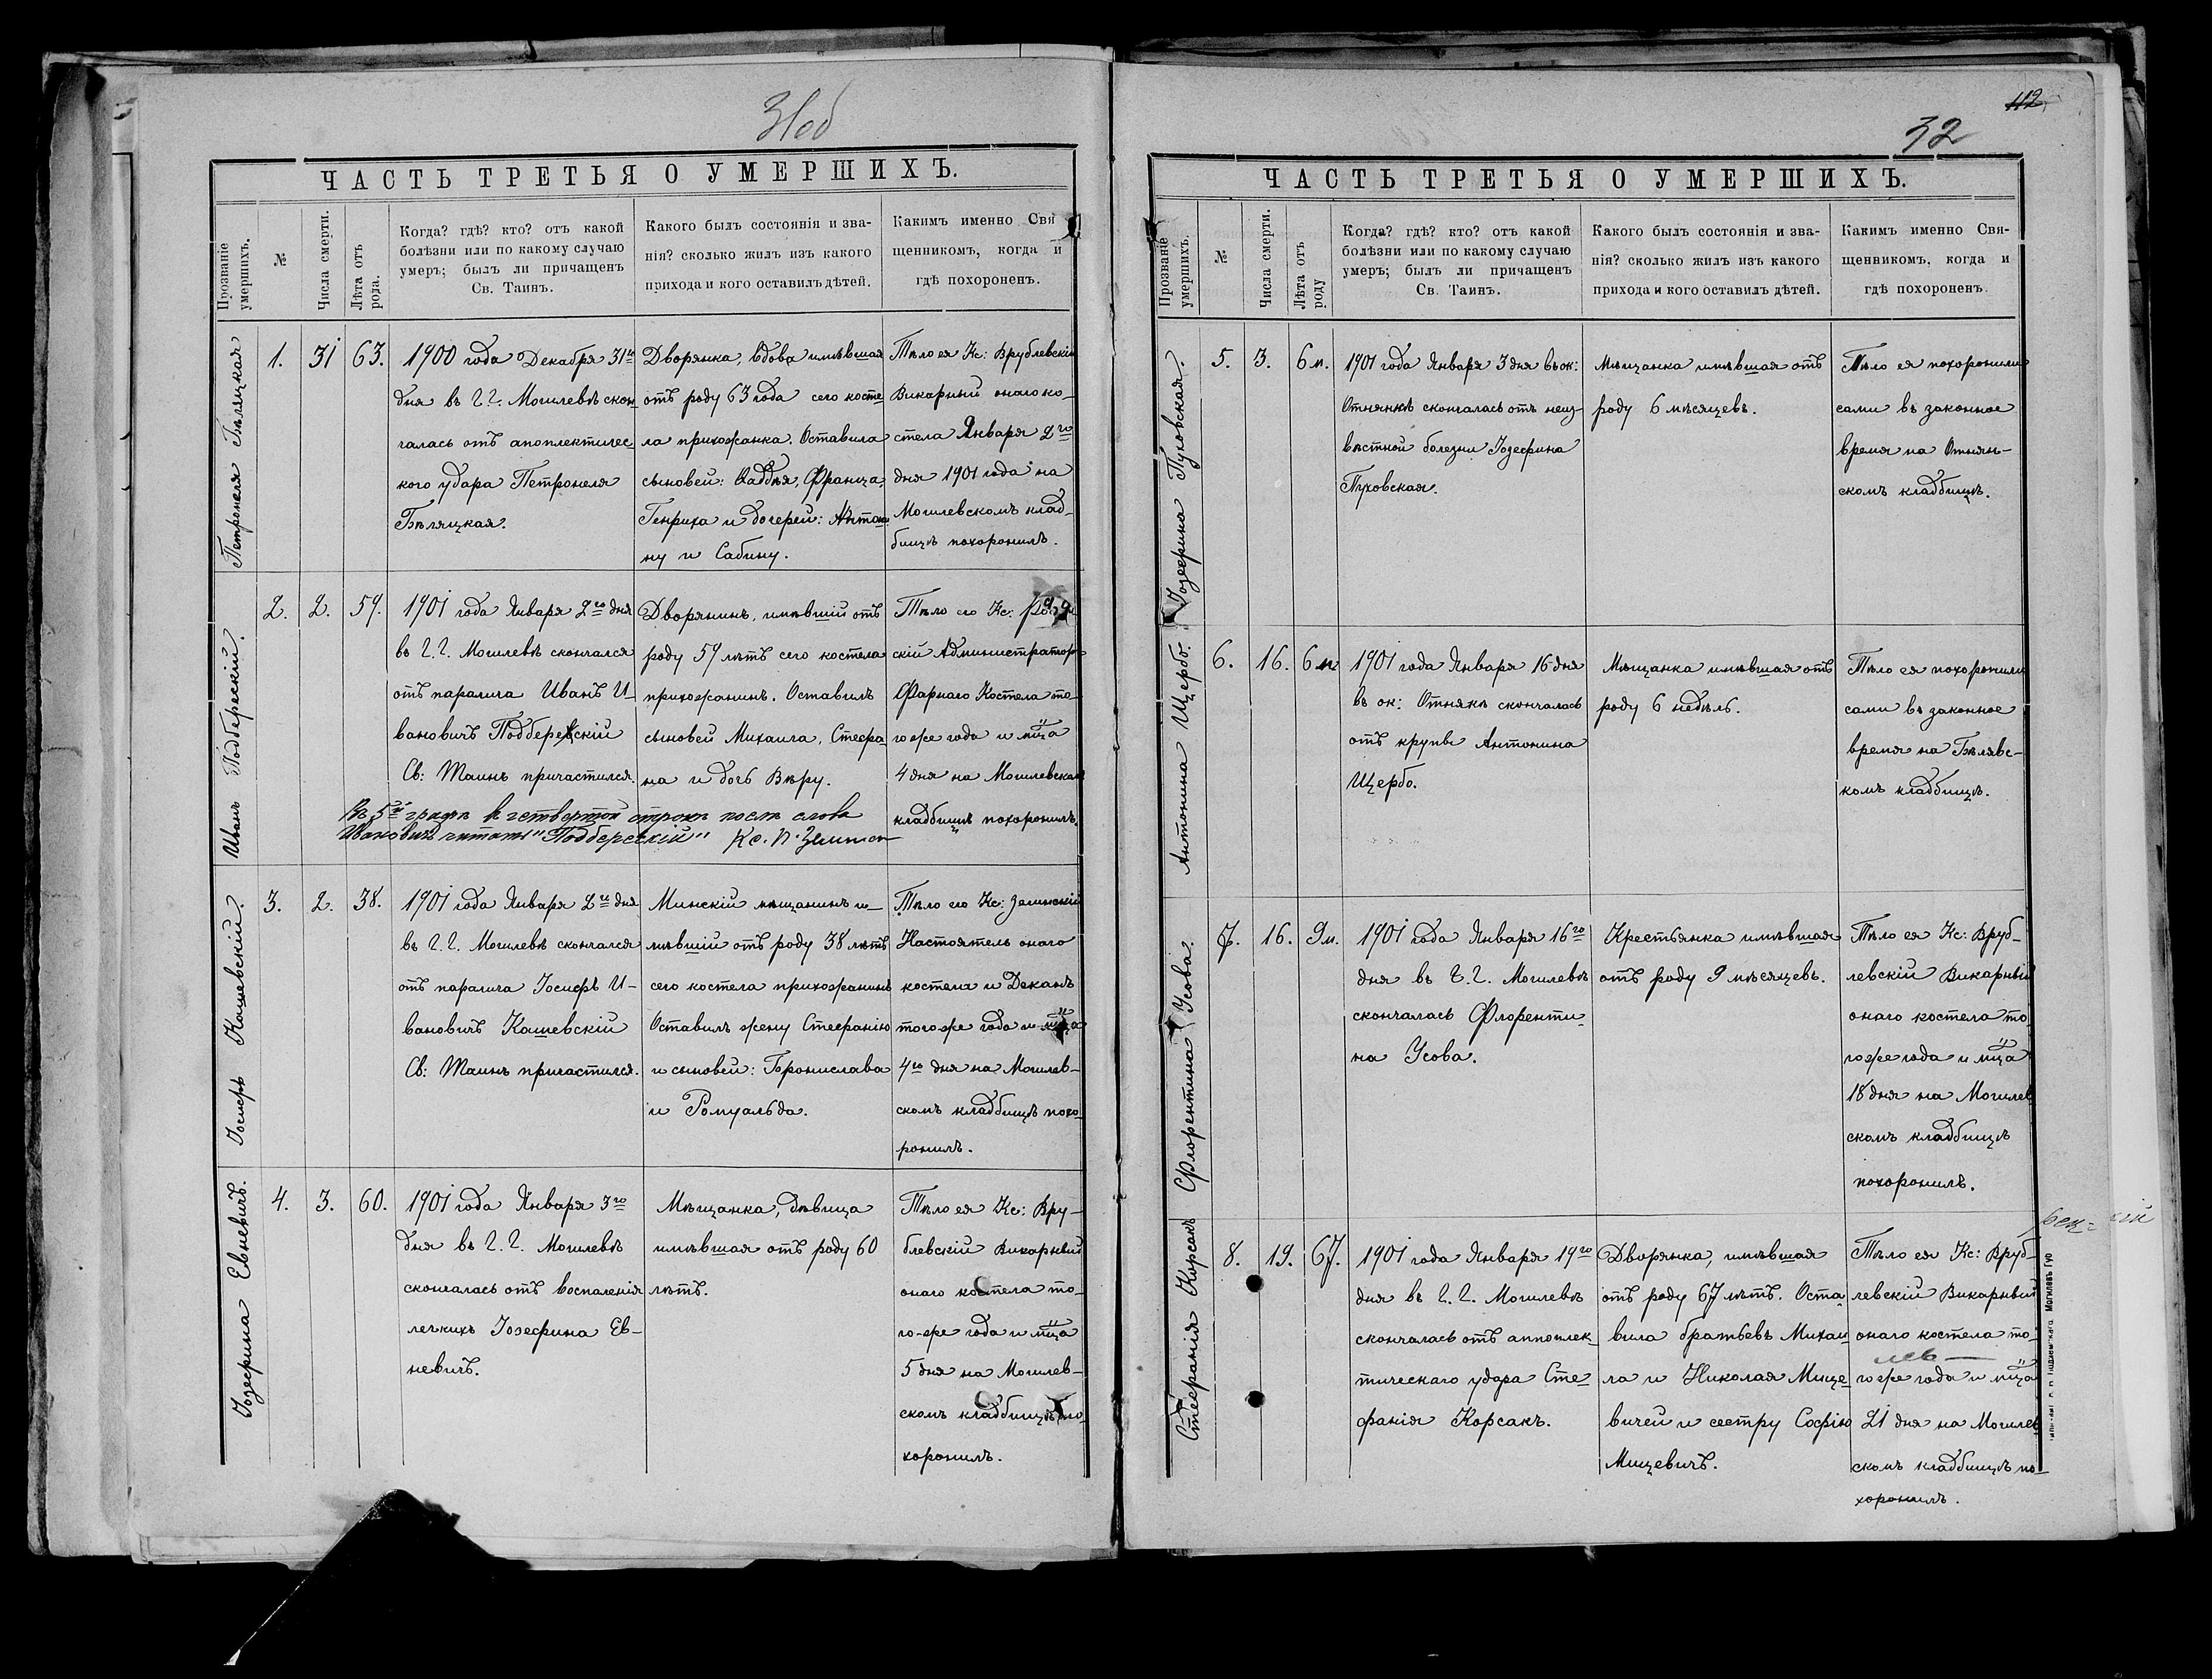 31об
ЧАСТЬ ТРЕТЬЯ О УМЕРШИХЪ.
Прозваніе умершихъ.
№
Числа смерти.
Лѣта отъ рода.
Когда? гдѣ? кто? отъ какой
болѣзни или по какому случаю
умеръ; былъ ли причащенъ
Св. Таинъ.
Какого былъ состоянія и зва-
нія? сколько жилъ изъ какого
прихода и кого оставилъ дѣтей.
Какимъ именно Свя
щенникомъ, когда и
гдѣ похороненъ.
Петронеля Бѣляцкая
1.
31
63.
1900 года Декабря 31го
дня въ г.г. Могилевѣ скон-
чалась отъ апоплектичес-
кого удара Петронеля
Бѣляцкая.
Дворянка, вдова имѣвшая
отъ роду 63 года сего косте
ла прихожанка. Оставила
сыновей: Фаддѣя, Франца,
Генриха и дочерей: Антони
ну и Сабину.
Тѣло ея Кс: Врублевскій
Викарный онаго ко-
стела Января 2го
дня 1901 года на
Могилевскомъ клад-
бищѣ похоронилъ.
Иванъ Подберескій.
2.
2.
59.
1901 года Января 2го дня
въ г.г. Могилевѣ скончался
отъ паралича Иванъ И-
вановичъ Подберескій
Св: Таинъ причастился.
Дворянинъ, имѣвшій отъ
роду 59 лѣтъ сего костела
прихожанинъ. Оставилъ
сыновей Михаила, Стефа-
на и дочь Вѣру.
Тѣло его Кс:
скій Администраторъ
Фарнаго Костела то-
гоже года и мца
4 дня на Могилевскомъ
кладбищѣ похоронилъ.
Въ 5й графѣ въ четвертой строкѣ послѣ слова
Ивановичъ читать "Подберескій" Кс. П.
Іосифъ Кашевскій.
3.
2.
38.
1901 года Января 2го дня
въ г.г. Могилевѣ скончался
отъ паралича Іосифъ И-
вановичъ Кашевскій
Св: Таинъ причастился.
Минскій мѣщанинъ и-
мѣвшій отъ роду 38 лѣтъ
сего костела прихожанинъ
Оставилъ жену Стефанію
и сыновей: Бронислава
и Ромуальда.
Тѣло его Кс: Зелинскій
Настоятель онаго
костела и Деканъ
тогоже года и мца
4го дня на Могилев-
скомъ кладбищѣ похо-
ронилъ.
Іозефина Евневичъ.
4.
3.
60.
1901 года Января 3го
дня въ г.г. Могилевѣ
скончалась отъ воспаленія
легкихъ Іозефина Ев-
невичъ.
Мѣщанка, дѣвица
имѣвшая отъ роду 60
лѣтъ.
Тѣло ея Кс: Вру-
блевскій Викарный
онаго костела то-
го-же года и мца
5 дня на Могилев-
скомъ кладбищѣ по-
хоронилъ.
112
32
ЧАСТЬ ТРЕТЬЯ О УМЕРШИХЪ.
Прозваніе умершихъ.
№
Числа смерти.
Лѣта отъ роду
Когда? гдѣ? кто? отъ какой
болѣзни или по какому случаю
умеръ; былъ ли причащенъ
Св. Таинъ.
Какого былъ состоянія и зва-
нія? сколько жилъ изъ какого
прихода и кого оставилъ дѣтей.
Какимъ именно Свя-
щенникомъ, когда и
гдѣ похороненъ.
Іозефина Пуховская.
5.
3.
6 м.
1901 года Января 3 дня въ ок:
Отнянкѣ скончалась отъ неиз-
вѣстной болезни Іозефина
Пуховская.
Мѣщанка имѣвшая отъ
роду 6 мѣсяцевъ.
Тѣло ея похоронили
сами въ законное
время на Отнян-
скомъ кладбищѣ.
Антонина Щербо.
6.
16.
6 н
1901 года Января 16 дня
въ ок: Отнякѣ скончалась
отъ крупы Антонина
Щербо.
Мѣщанка имѣвшая отъ
роду 6 недѣль.
Тѣло ея похоронили
сами въ законное
время на Бѣлявс-
комъ кладбищѣ.
Флорентина Усова.
7.
16.
9 м.
1901 года Января 16го
дня въ г.г. Могилевѣ
скончалась Флоренти-
на Усова.
Крестьянка имѣвшая
отъ роду 9 мѣсяцевъ.
Тѣло ея Кс: Вруб-
левскій Викарный
онаго костела то-
гоже года и мца
18 дня на Могилев
скомъ кладбищѣ
похоронилъ.
Стефанія Корсакъ
8.
19.
67.
1901 года Января 19го
дня въ г.г. Могилевѣ
скончалась отъ апоплек-
тическаго удара Сте-
фанія Корсакъ.
Дворянка, имѣвшая
отъ роду 67 лѣтъ. Оста-
вила братьевъ Михаи-
ла и Николая Мице-
вичей и сестру Софію
Мицевичъ.
Тѣло ея Кс: Вруб-
левскій Викарный
онаго костела то-
гоже года и мца
21 дня на Могилев
скомъ кладбищѣ по-
хоронилъ.